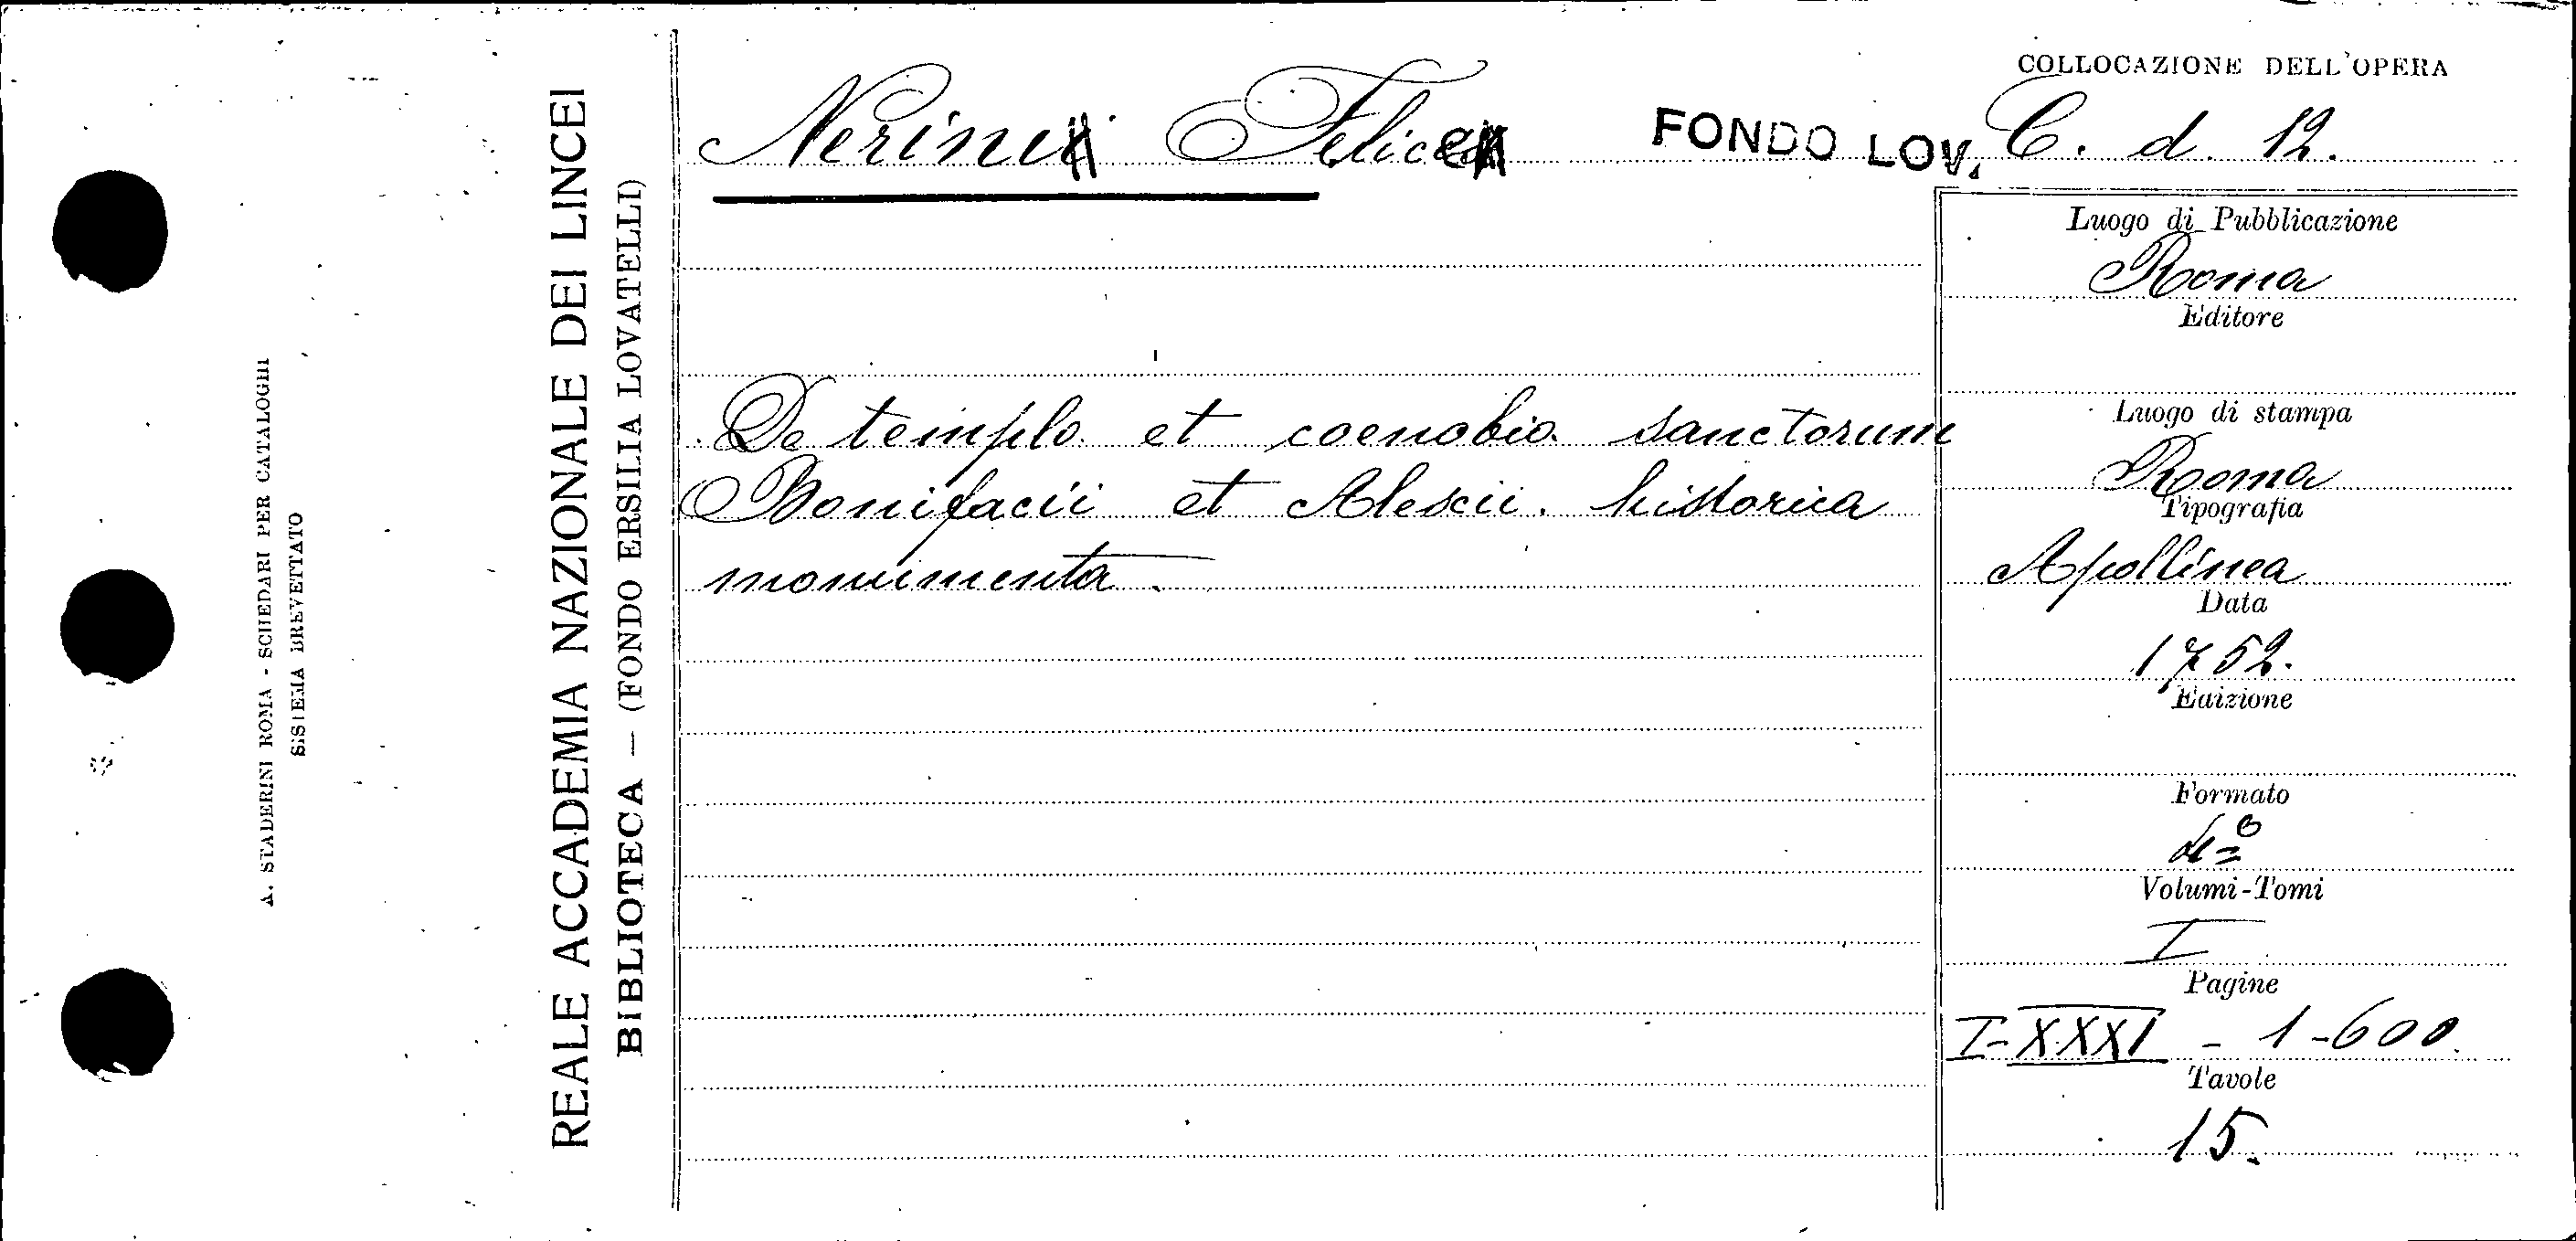 A. STADERINI ROMA - SCHEDARI PER CATALOGHI
SISTEMA BREVETTATO
REALE ACCADEMIA NAZIONALE DEI LINCEI
BIBLIOTECA — (FONDO ERSILIA LOVATELLI)
Nerini Felice
FONDO LOV.
COLLOCAZIONE DELL'OPERA
C. d. 12.
De templo et coenobio sanctorum
Bonifacii et Alexii. historica
monumenta.
Luogo di Pubblicazione
Roma
Editore
Luogo di stampa
Roma
Tipografia
Apollinea
Data
1752.
Edizione
Formato
4º
Volumi-Tomi
I
Pagine
I-XXXI - 1-600.
Tavole
15.